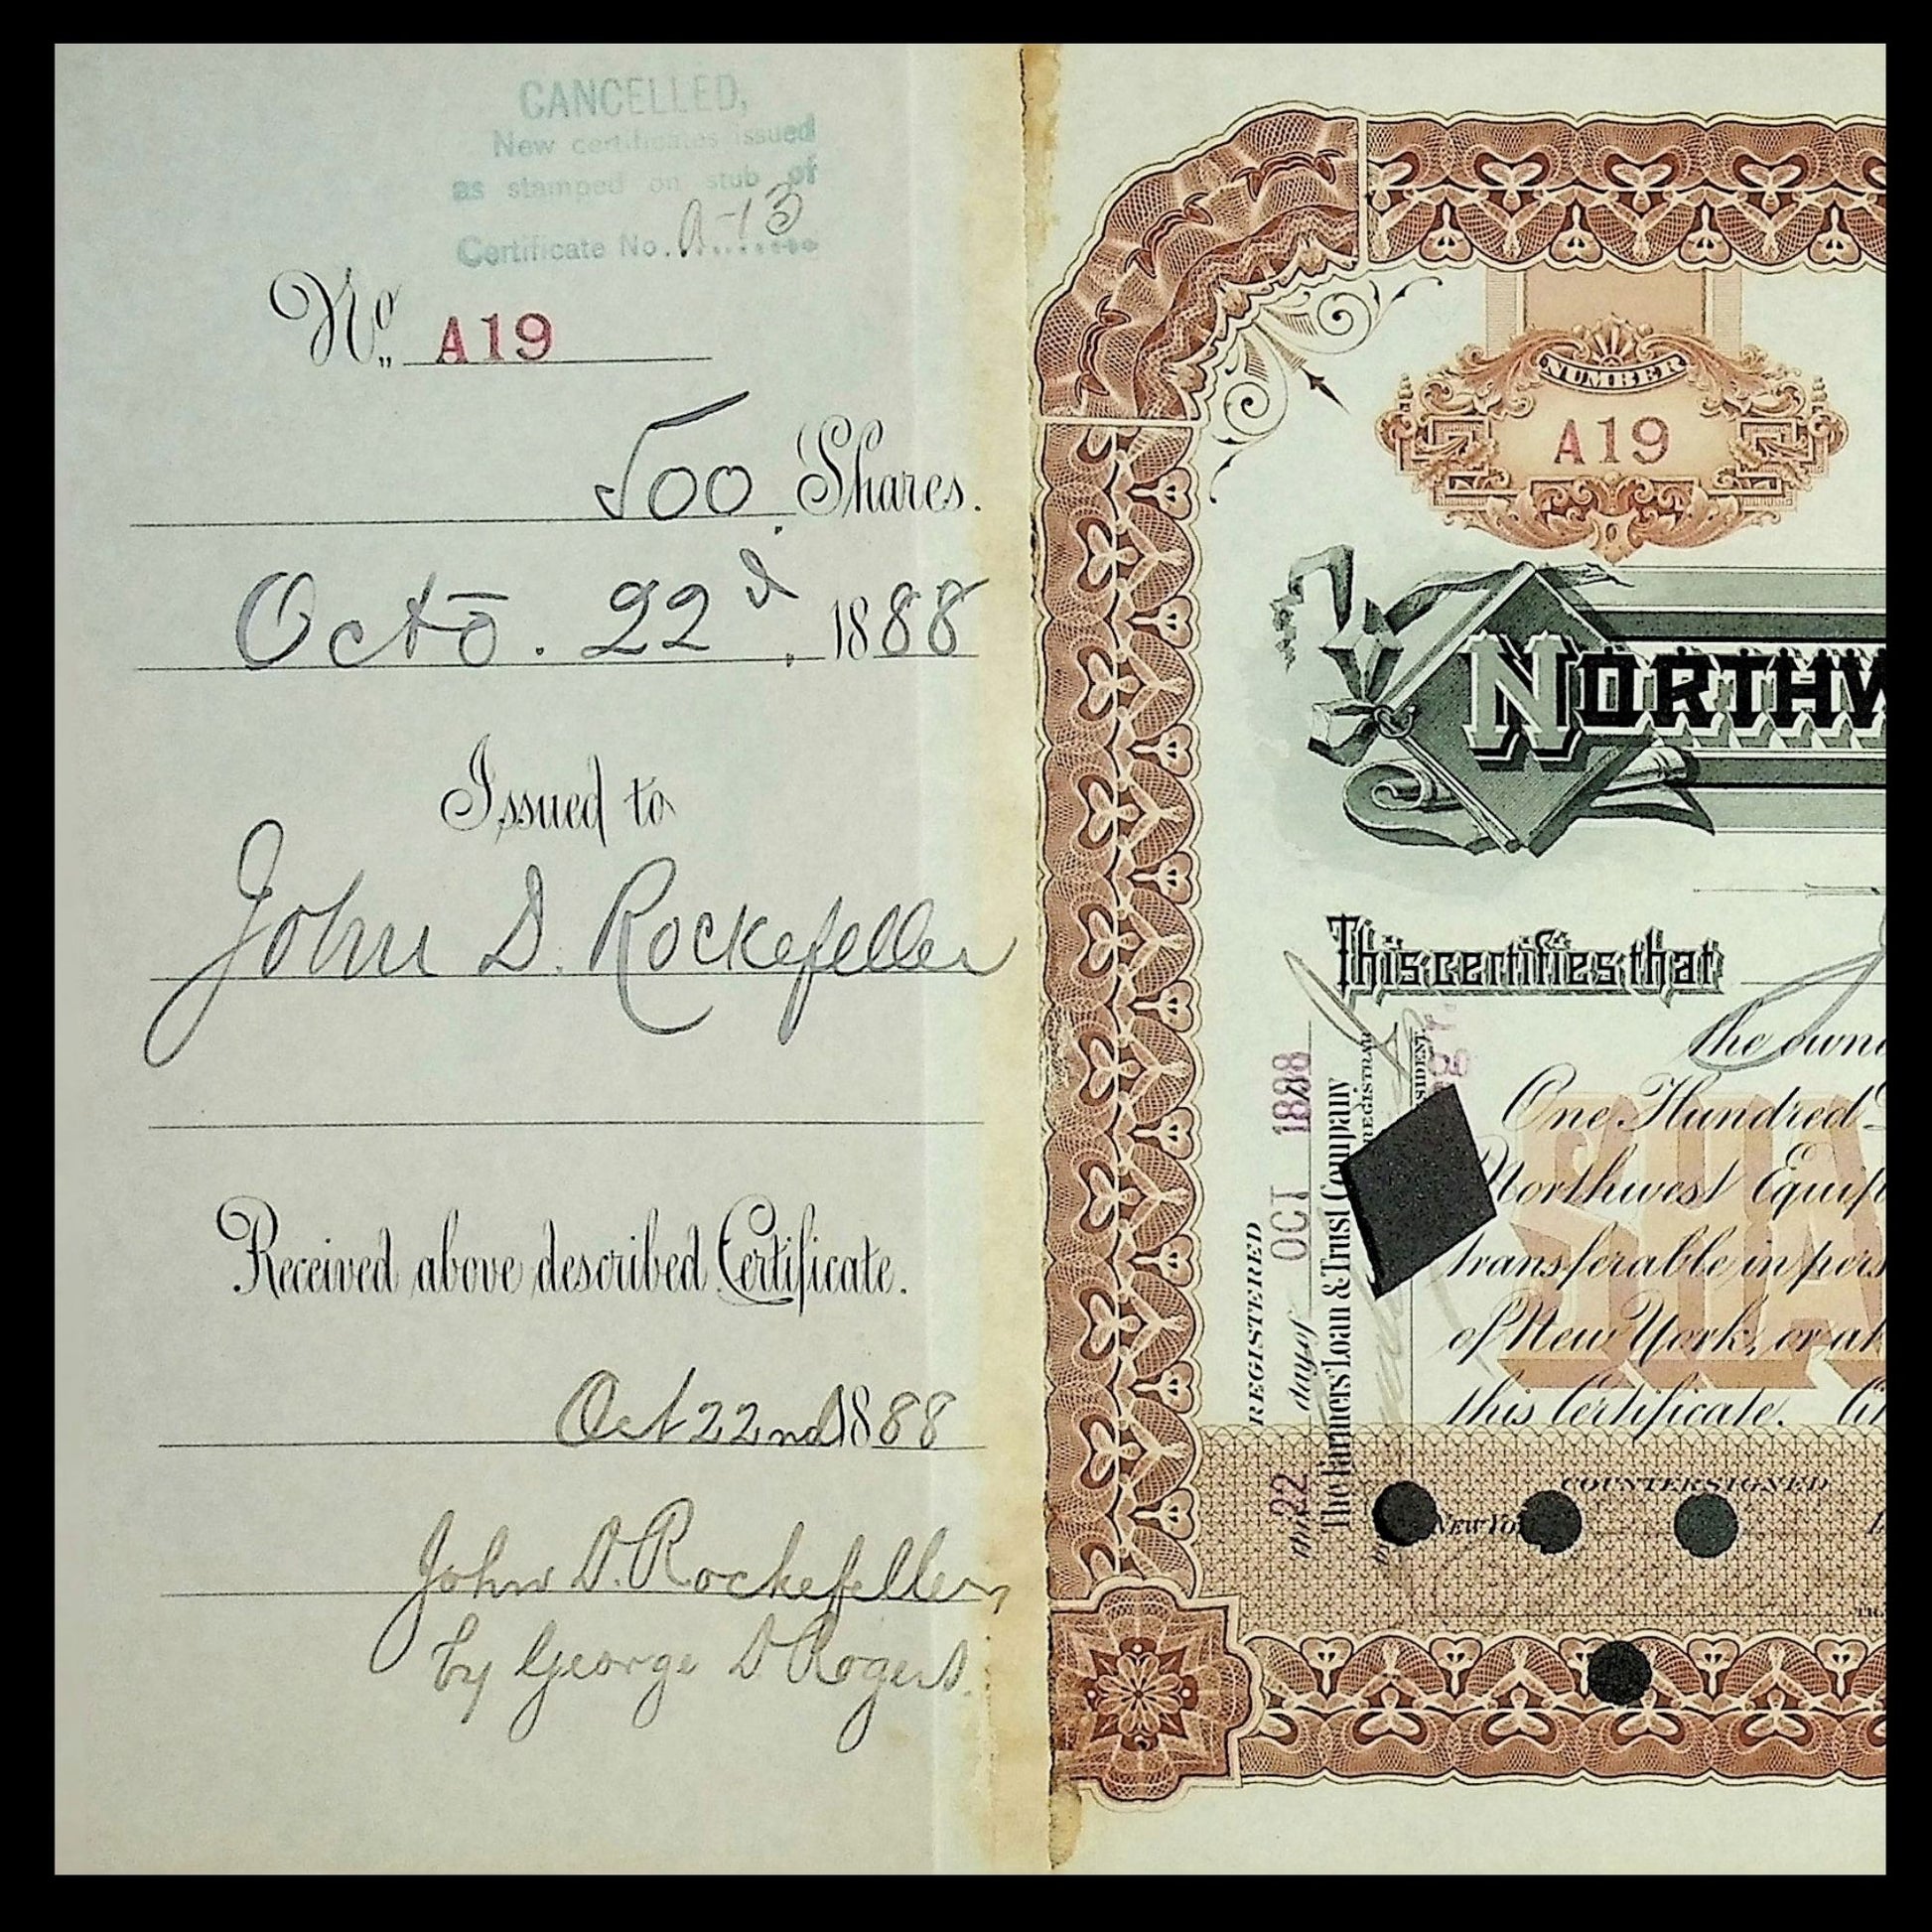 CANCELLED,
New certificates issued
as stamped on stub of
Certificate No. A-13
No. A19
500 Shares.
Octo. 22d, 1888
Issued to
John D. Rockefeller
Received above described Certificate.
Oct 22nd 1888
John D. Rockefeller
by George D Rogers.
NUMBER
A19
NORTHW
This certifies that
the owne
One Hundred
Northwest Equip
transferable in pers
of New York, or at
this Certificate.
REGISTERED
this 22 day of OCT 1888
The Farmers' Loan & Trust Company
REGISTRAR
COUNTERSIGNED
NEW YO